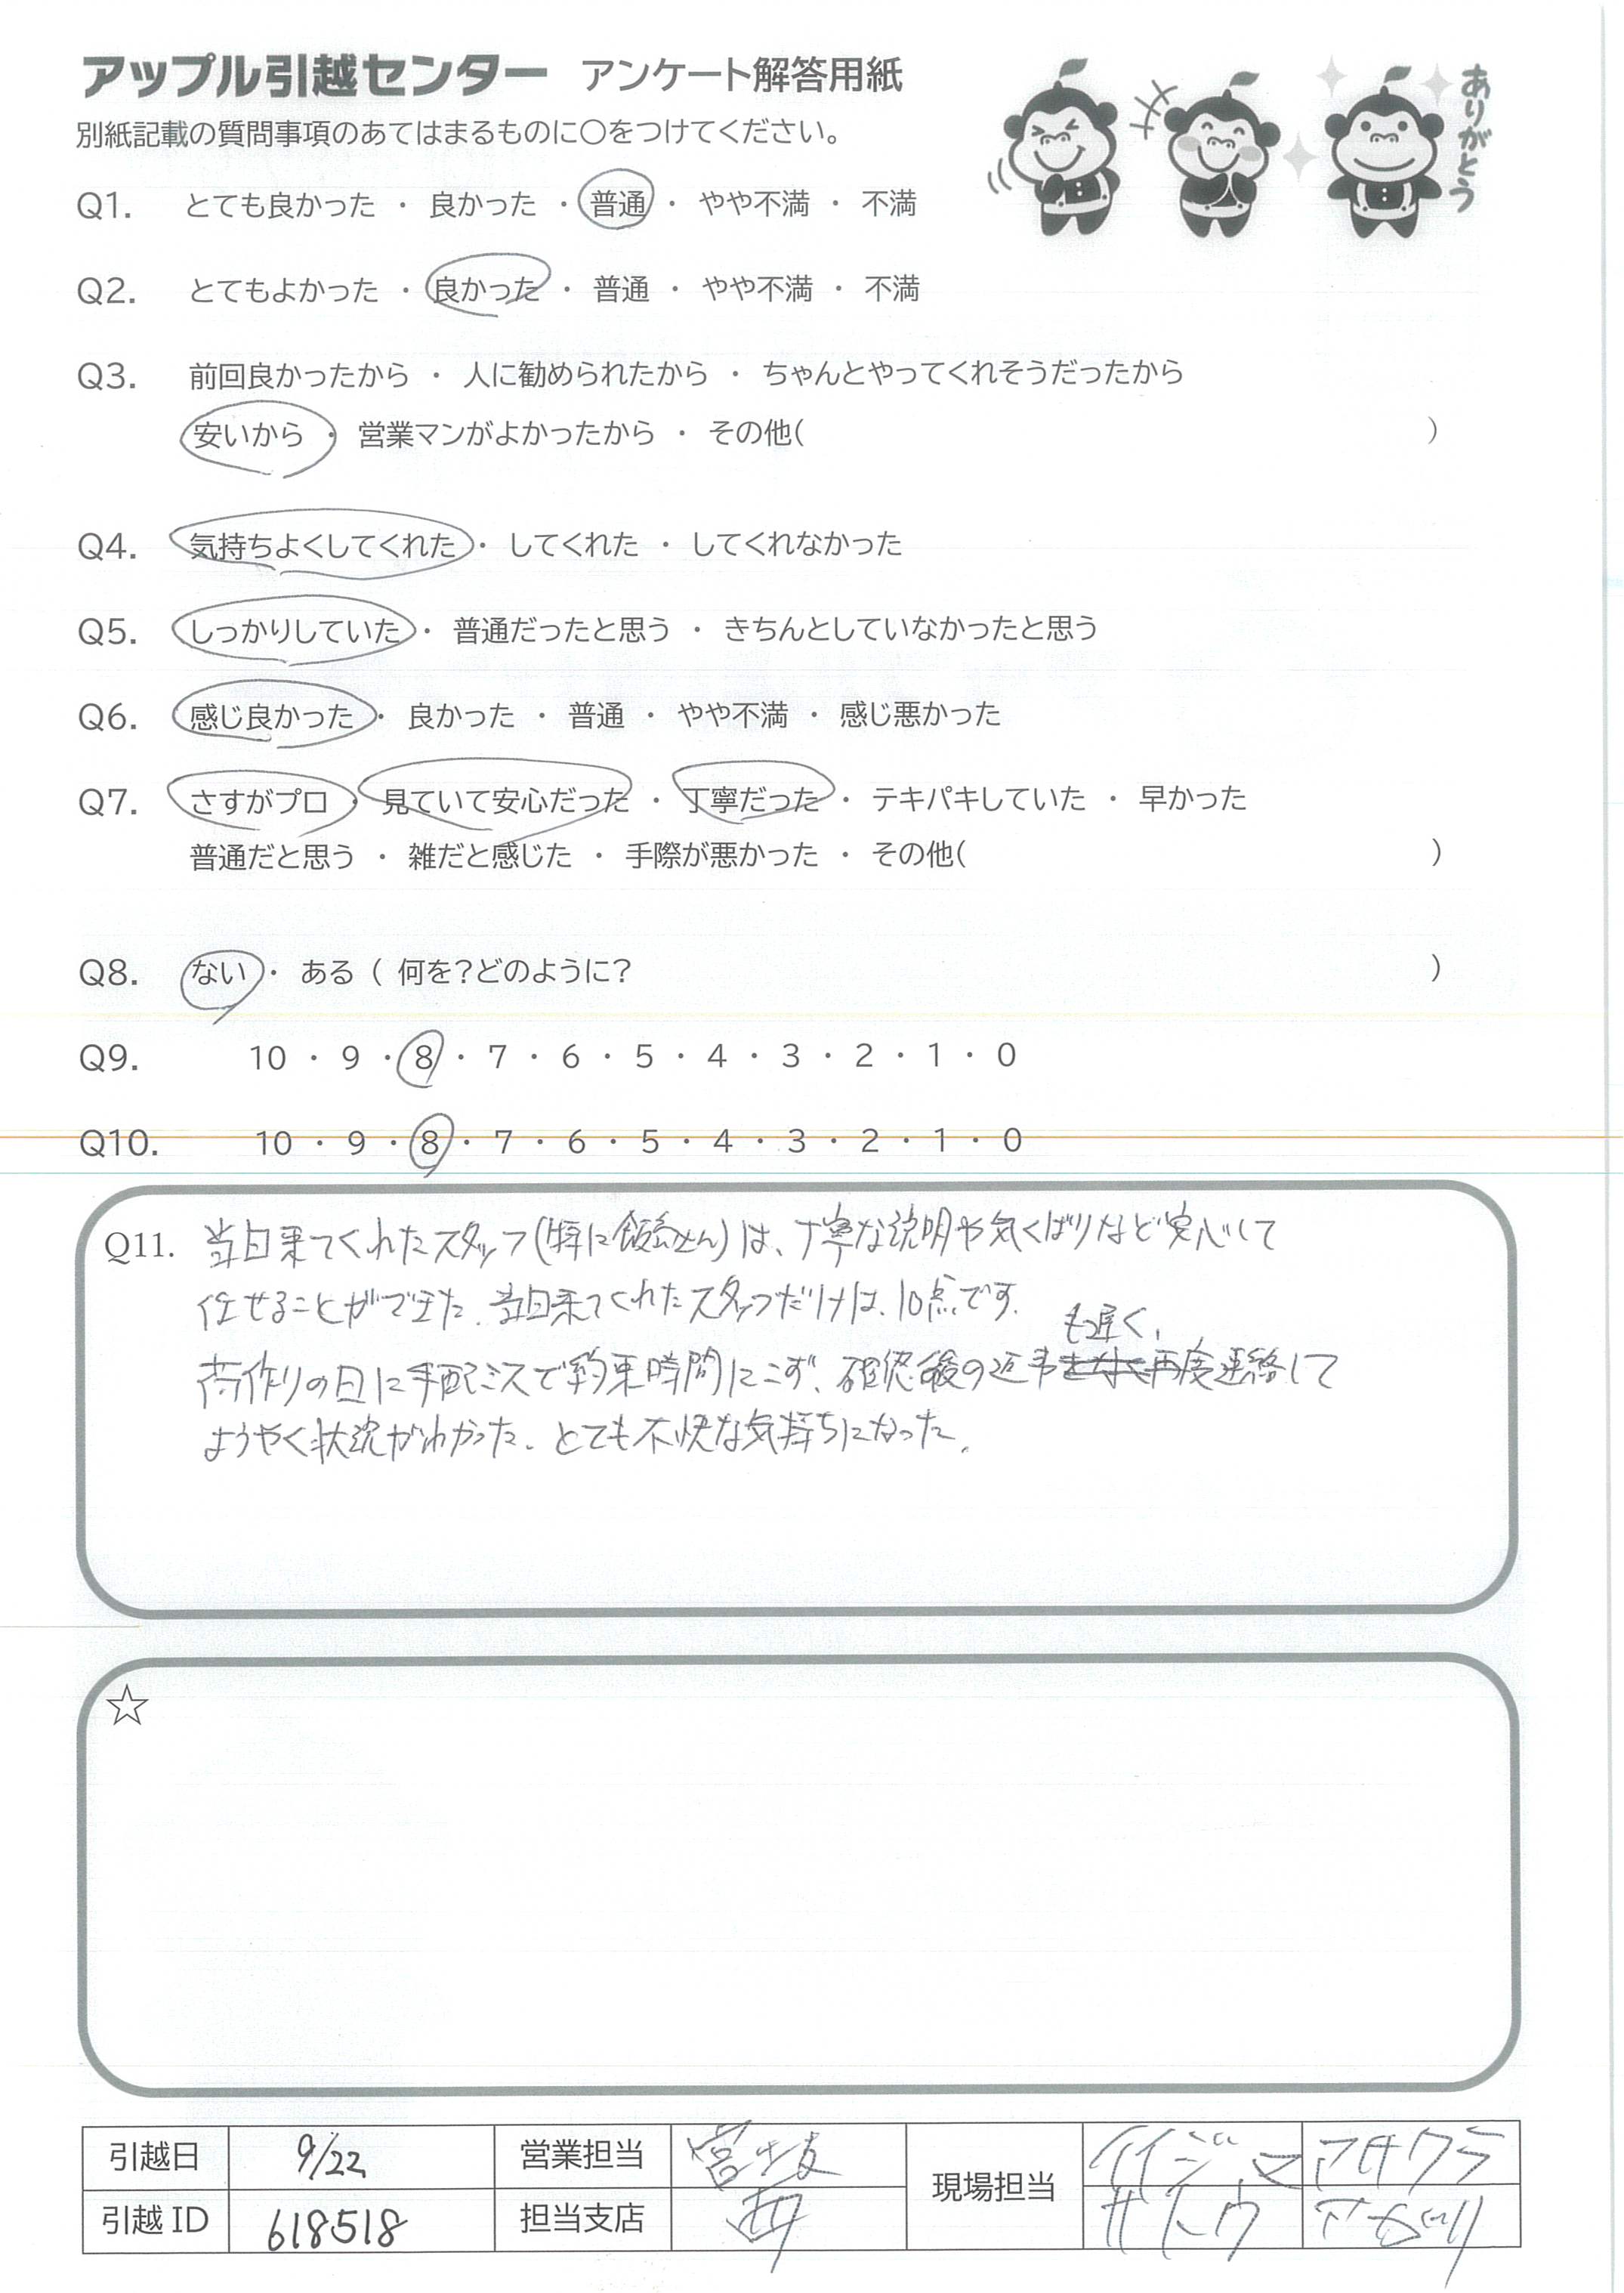 アップル引越センター アンケート解答用紙
ありがとう
別紙記載の質問事項のあてはまるものに○をつけてください。
Q1. とても良かった ・ 良かった ・ 普通 ・ やや不満 ・ 不満
Q2. とてもよかった ・ 良かった ・ 普通 ・ やや不満 ・ 不満
Q3. 前回良かったから ・ 人に勧められたから ・ ちゃんとやってくれそうだったから
安いから ・ 営業マンがよかったから ・ その他( )
Q4. 気持ちよくしてくれた ・ してくれた ・ してくれなかった
Q5. しっかりしていた ・ 普通だったと思う ・ きちんとしていなかったと思う
Q6. 感じ良かった ・ 良かった ・ 普通 ・ やや不満 ・ 感じ悪かった
Q7. さすがプロ ・ 見ていて安心だった ・ 丁寧だった ・ テキパキしていた ・ 早かった
普通だと思う ・ 雑だと感じた ・ 手際が悪かった ・ その他( )
Q8. ない ・ ある ( 何を?どのように? )
Q9. 10 ・ 9 ・ 8 ・ 7 ・ 6 ・ 5 ・ 4 ・ 3 ・ 2 ・ 1 ・ 0
Q10. 10 ・ 9 ・ 8 ・ 7 ・ 6 ・ 5 ・ 4 ・ 3 ・ 2 ・ 1 ・ 0
Q11. 当日来てくれたスタッフ(特に飯島さん)は、丁寧な説明や気くばりなど安心して
任せることができた。当日来てくれたスタッフだけは、10点です。
荷作りの日に手配ミスで約束時間にこず、確認後の返事も遅く、再度連絡して
ようやく状況がわかった。とても不快な気持ちになった。
☆
引越日 9/22 営業担当 現場担当 イイジマ アサクラ
引越 ID 618518 担当支店 西 サトウ